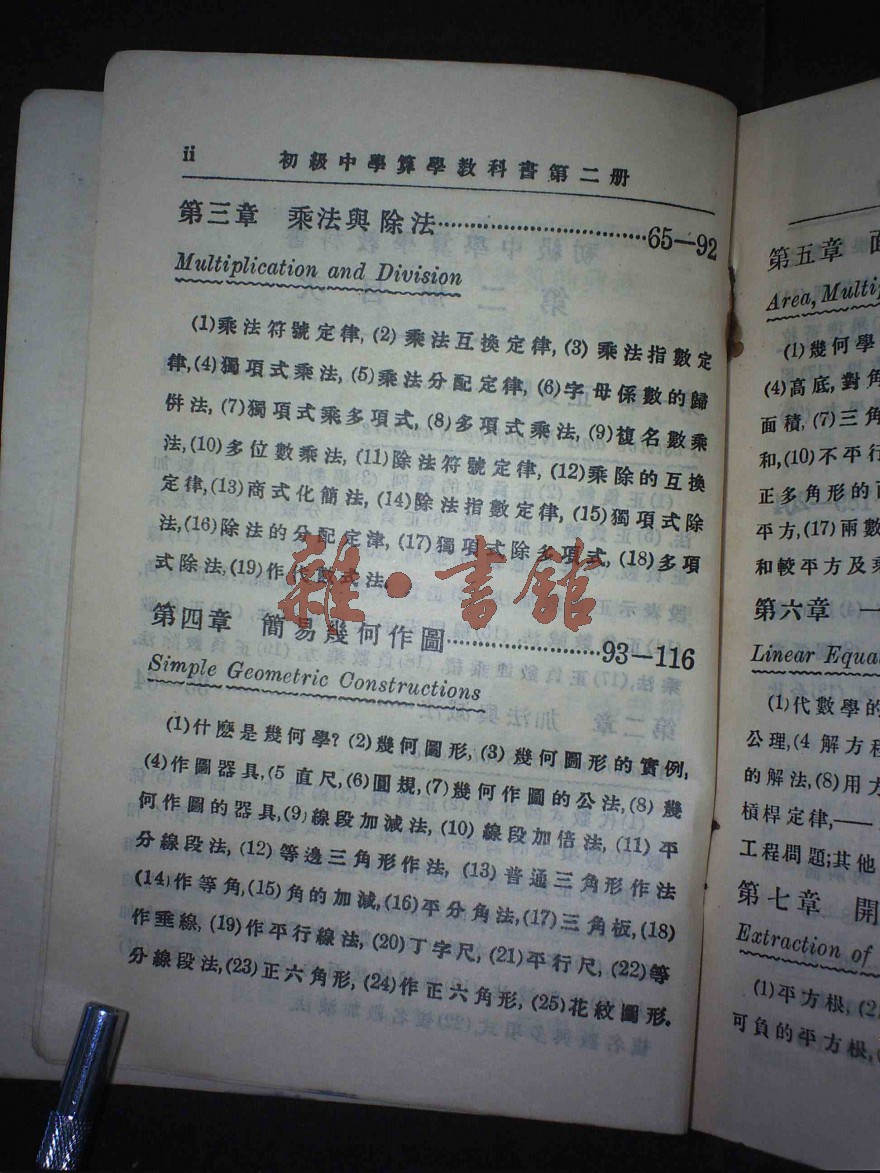 ii 初級中學算學教科書第二册
第三章 乘法與除法……………………………65—92
Multiplication and Division
(1)乘法符號定律, (2) 乘法互換定律, (3) 乘法指數定
律,(4)獨項式乘法, (5)乘法分配定律, (6)字母係數的歸
併法, (7)獨項式乘多項式, (8)多項式乘法, (9)複名數乘
法,(10)多位數乘法, (11)除法符號定律, (12)乘除的互換
定律,(13)商式化簡法, (14)除法指數定律, (15)獨項式除
法,(16)除法的分配定津, (17)獨項式除多項式, (18)多項
式除法,(19)作代數式法.
第四章 簡易幾何作圖……………………93—116
Simple Geometric Constructions
(1)什麽是幾何學? (2)幾何圖形, (3) 幾何圖形的實例,
(4)作圖器具,(5 直尺,(6)圓規,(7)幾何作圖的公法,(8) 幾
何作圖的器具,(9)線段加減法, (10) 線段加倍法, (11) 平
分線段法, (12) 等邊三角形作法, (13) 普通三角形作法
(14)作等角,(15)角的加減,(16)平分角法,(17)三角板,(18)
作垂線, (19)作平行線法, (20)丁字尺, (21)平行尺, (22)等
分線段法,(23)正六角形, (24)作正六角形, (25)花紋圖形.
雜·書館
第五章 面
Area, Multi
(1)幾何學
(4)高底, 對角
面積, (7)三角
和,(10)不平行
正多角形的面
平方,(17)兩數
和較平方及乘
第六章 一
Linear Equa
(1)代數學的
公理,(4 解方程
的解法,(8)用方
槓桿定律,——
工程問題;其他
第七章 開
Extraction of
(1)平方根, (2
可負的平方根,